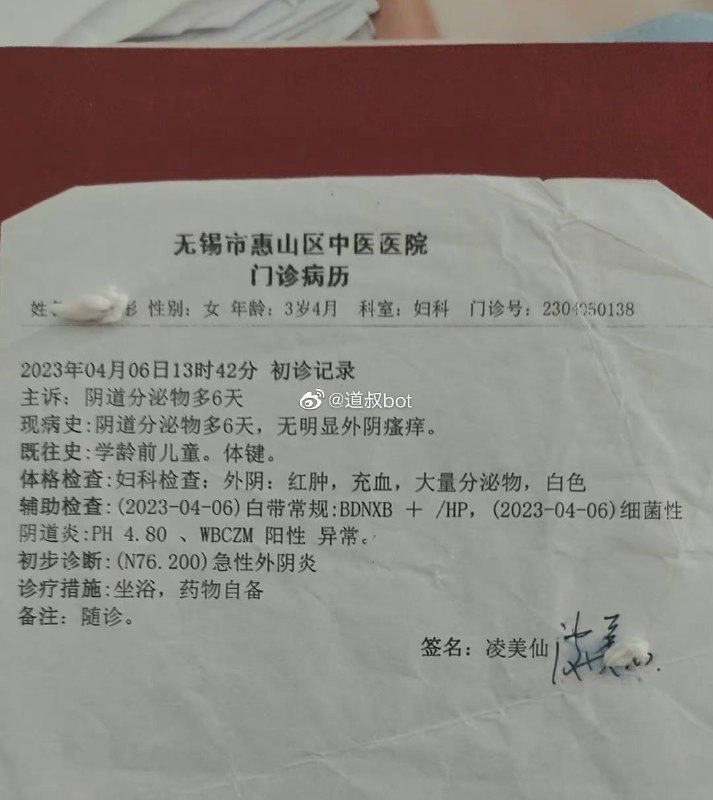 无锡市惠山区中医医院
门诊病历
姓 彤 性别：女 年龄：3岁4月 科室：妇科 门诊号：2304050138
2023年04月06日13时42分 初诊记录
主诉：阴道分泌物多6天
@道叔bot
现病史：阴道分泌物多6天，无明显外阴瘙痒。
既往史：学龄前儿童。体健。
体格检查：妇科检查：外阴：红肿，充血，大量分泌物，白色
辅助检查：(2023-04-06)白带常规：BDNXB ＋ /HP，(2023-04-06)细菌性
阴道炎：PH 4.80 、WBCZM 阳性 异常。
初步诊断：(N76.200)急性外阴炎
诊疗措施：坐浴，药物自备
备注：随诊。
签名：凌美仙